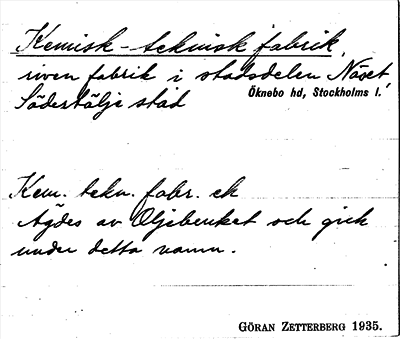 Kemisk-teknisk fabrik,
riven fabrik i stadsdelen Näset
Öknebo hd, Stockholms l.
Södertälje stad
Kem. tekn. fabr. ek
Ägdes av Oljebenket och gick
under detta namn.
GÖRAN ZETTERBERG 1935.